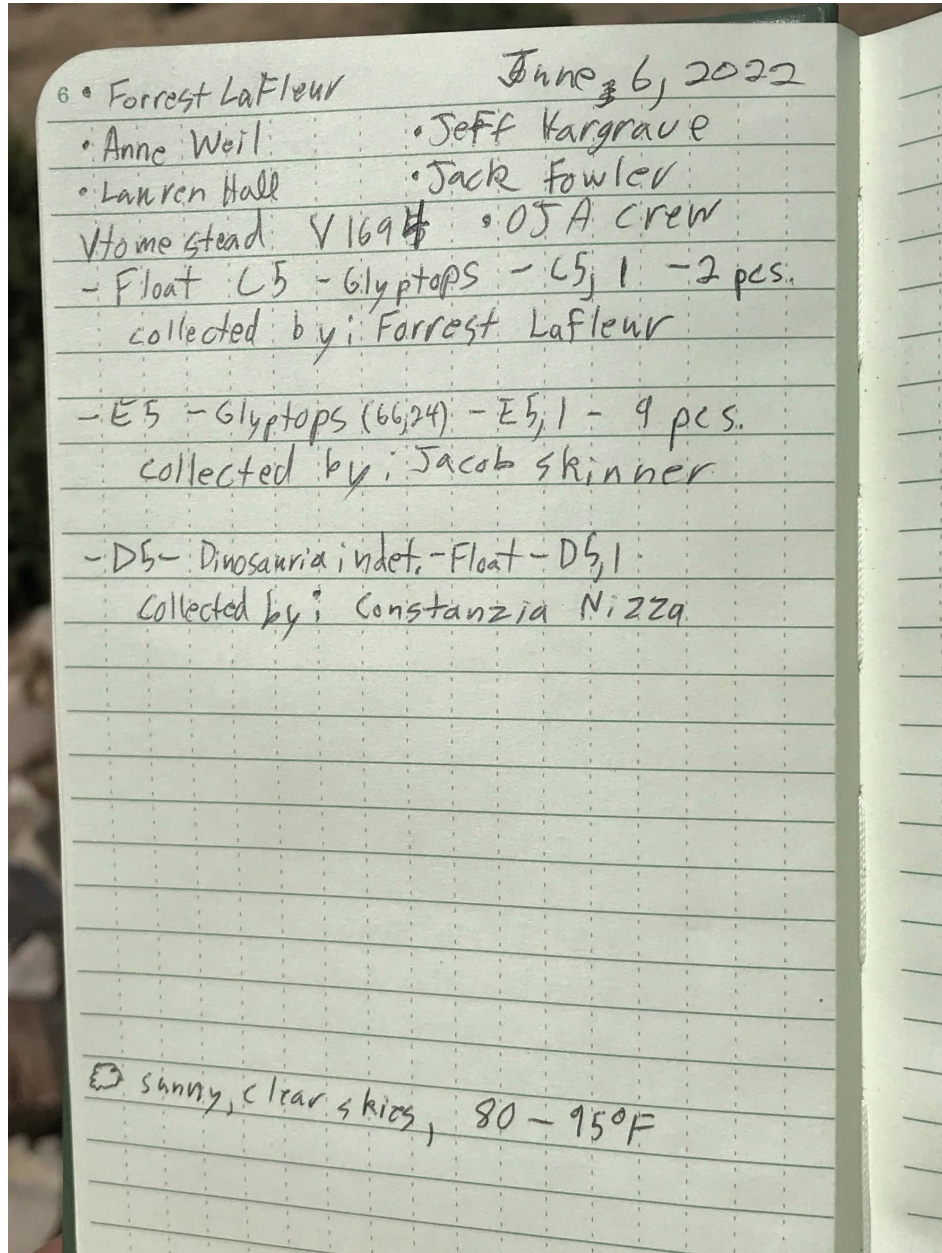 6 • Forrest LaFleur June 6, 2022
• Anne Weil • Jeff Hargrave
• Lauren Hall • Jack Fowler
Homestead V1694 • OJA Crew
- Float C5 - Glyptops - C5,1 - 2 pcs.
collected by: Forrest Lafleur
- E5 - Glyptops (66,24) - E5,1 - 9 pcs.
collected by: Jacob Skinner
- D5 - Dinosauria indet. - Float - D5,1
collected by: Constanzia Nizza
sunny, clear skies, 80 - 95°F